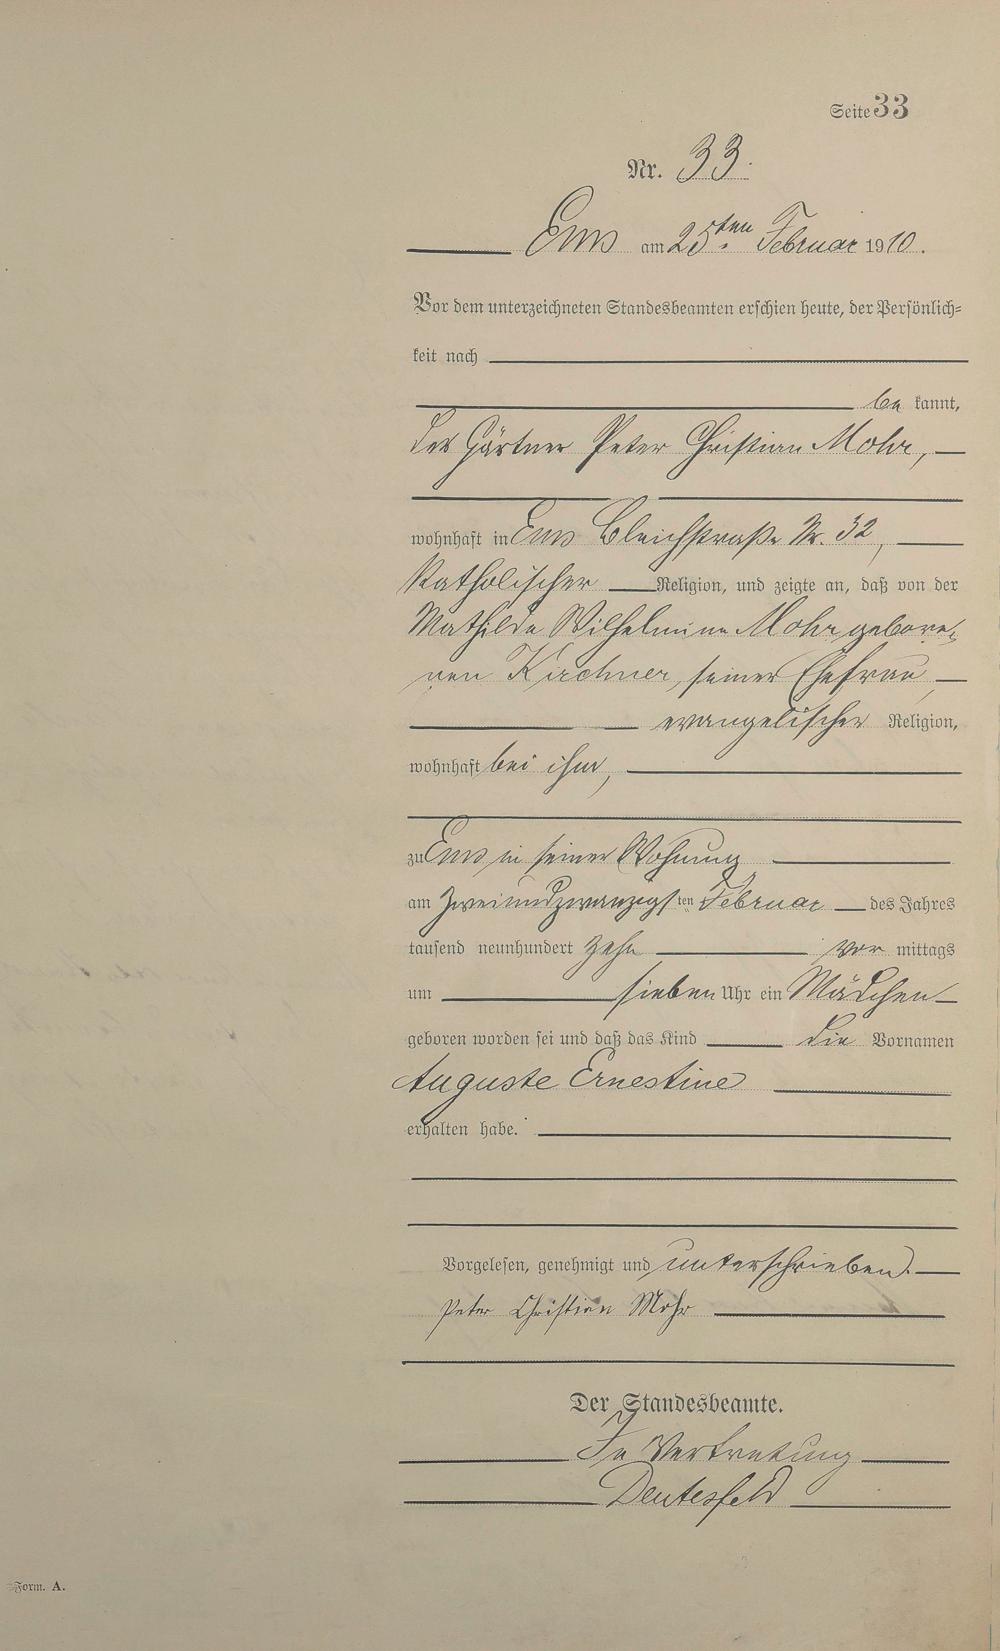 Seite 33
Nr. 33.
Ems am 25ten Februar 1910.
Vor dem unterzeichneten Standesbeamten erschien heute, der Persönlich=
keit nach
be kannt,
der Gärtner Peter Christian Mohr,
wohnhaft in Ems Bleichstraße Nr. 32,
Katholischer Religion, und zeigte an, daß von der
Mathilde Wilhelmine Mohr gebore-
nen Kirchner, seiner Ehefrau
evangelischer Religion,
wohnhaft bei ihm,
zu Ems in seiner Wohnung
am zweiundzwanzigsten Februar des Jahres
tausend neunhundert zehn vor mittags
um sieben Uhr ein Mädchen
geboren worden sei und daß das Kind die Vornamen
Auguste Ernestine
erhalten habe.
Vorgelesen, genehmigt und unterschrieben.
Peter Christian Mohr
Der Standesbeamte.
In Vertretung
Deutesfeld
Form. A.